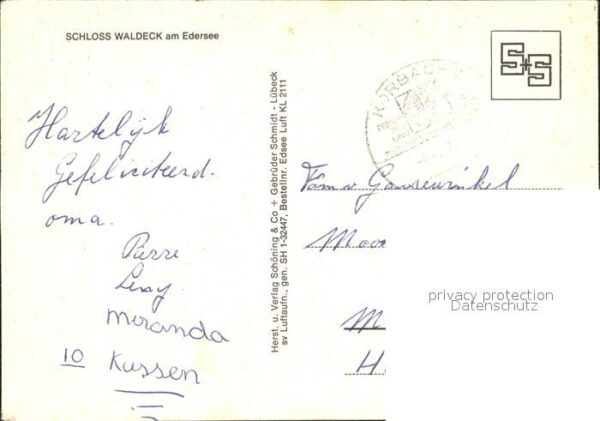 SCHLOSS WALDECK am Edersee
Hartelijk
Gefeliciteerd.
oma.
Pierre
Leny
Miranda
10 Kussen
Herst. u. Verlag Schöning & Co + Gebrüder Schmidt - Lübeck
sv Luftaufn., gen. SH 1-32447, Bestellnr. Edsee Luft KL 2111
S+S
KORBACH
Fam v. Gansewinkel
M
H
privacy protection
Datenschutz